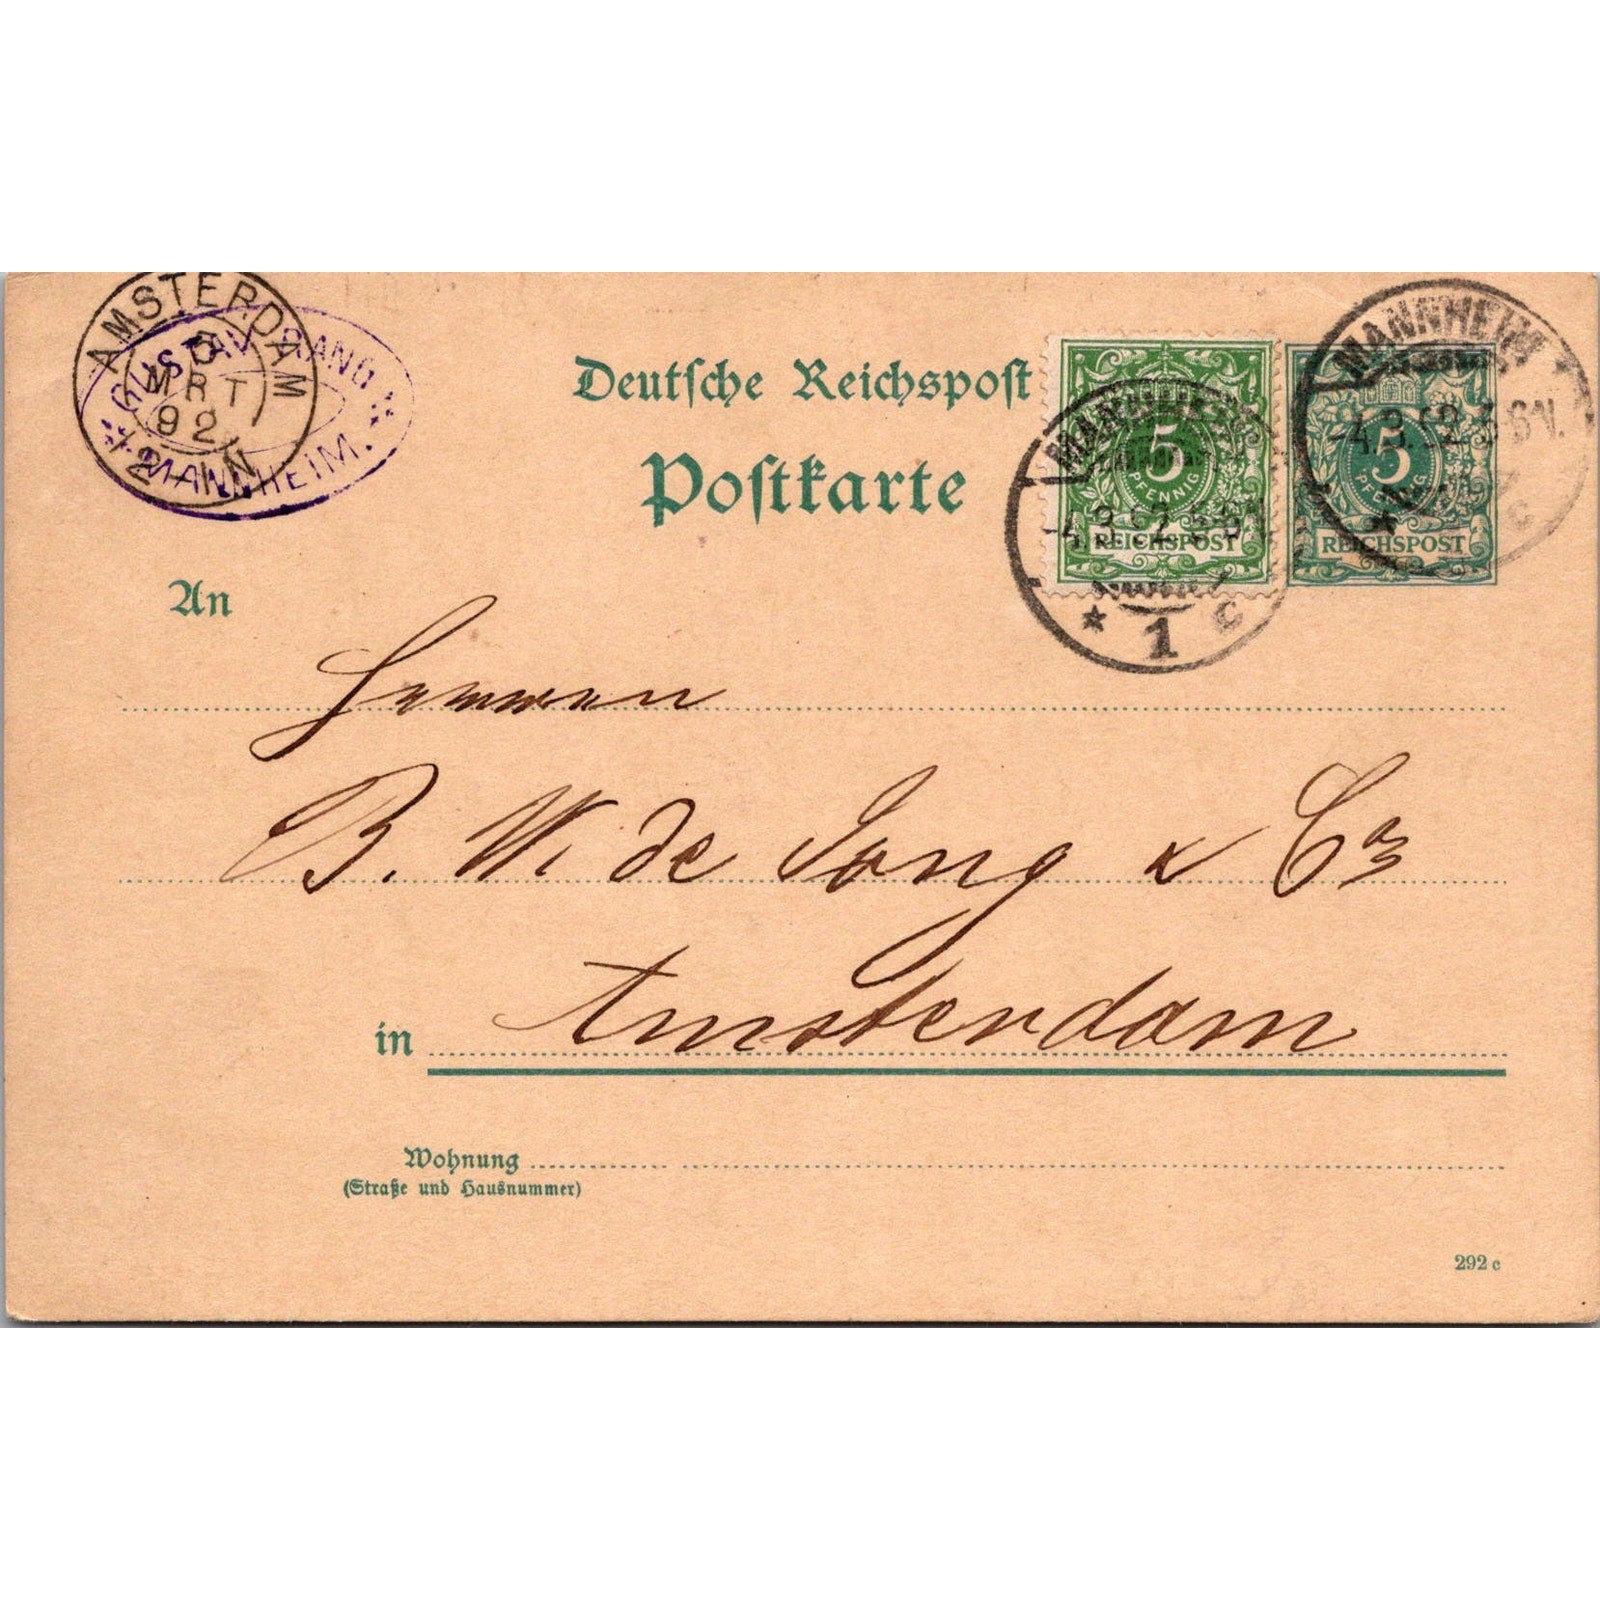 AMSTERDAM
MRT
92
12-1N
GUSTAV
MANNHEIM.
Deutsche Reichspost
Postkarte
5
PFENNIG
REICHSPOST
MANNHEIM
1 c
5
PFENNIG
REICHSPOST
MANNHEIM
c
An
Herren
B. W. de Jong & Co
in Amsterdam
Wohnung
(Straße und Hausnummer)
292 c